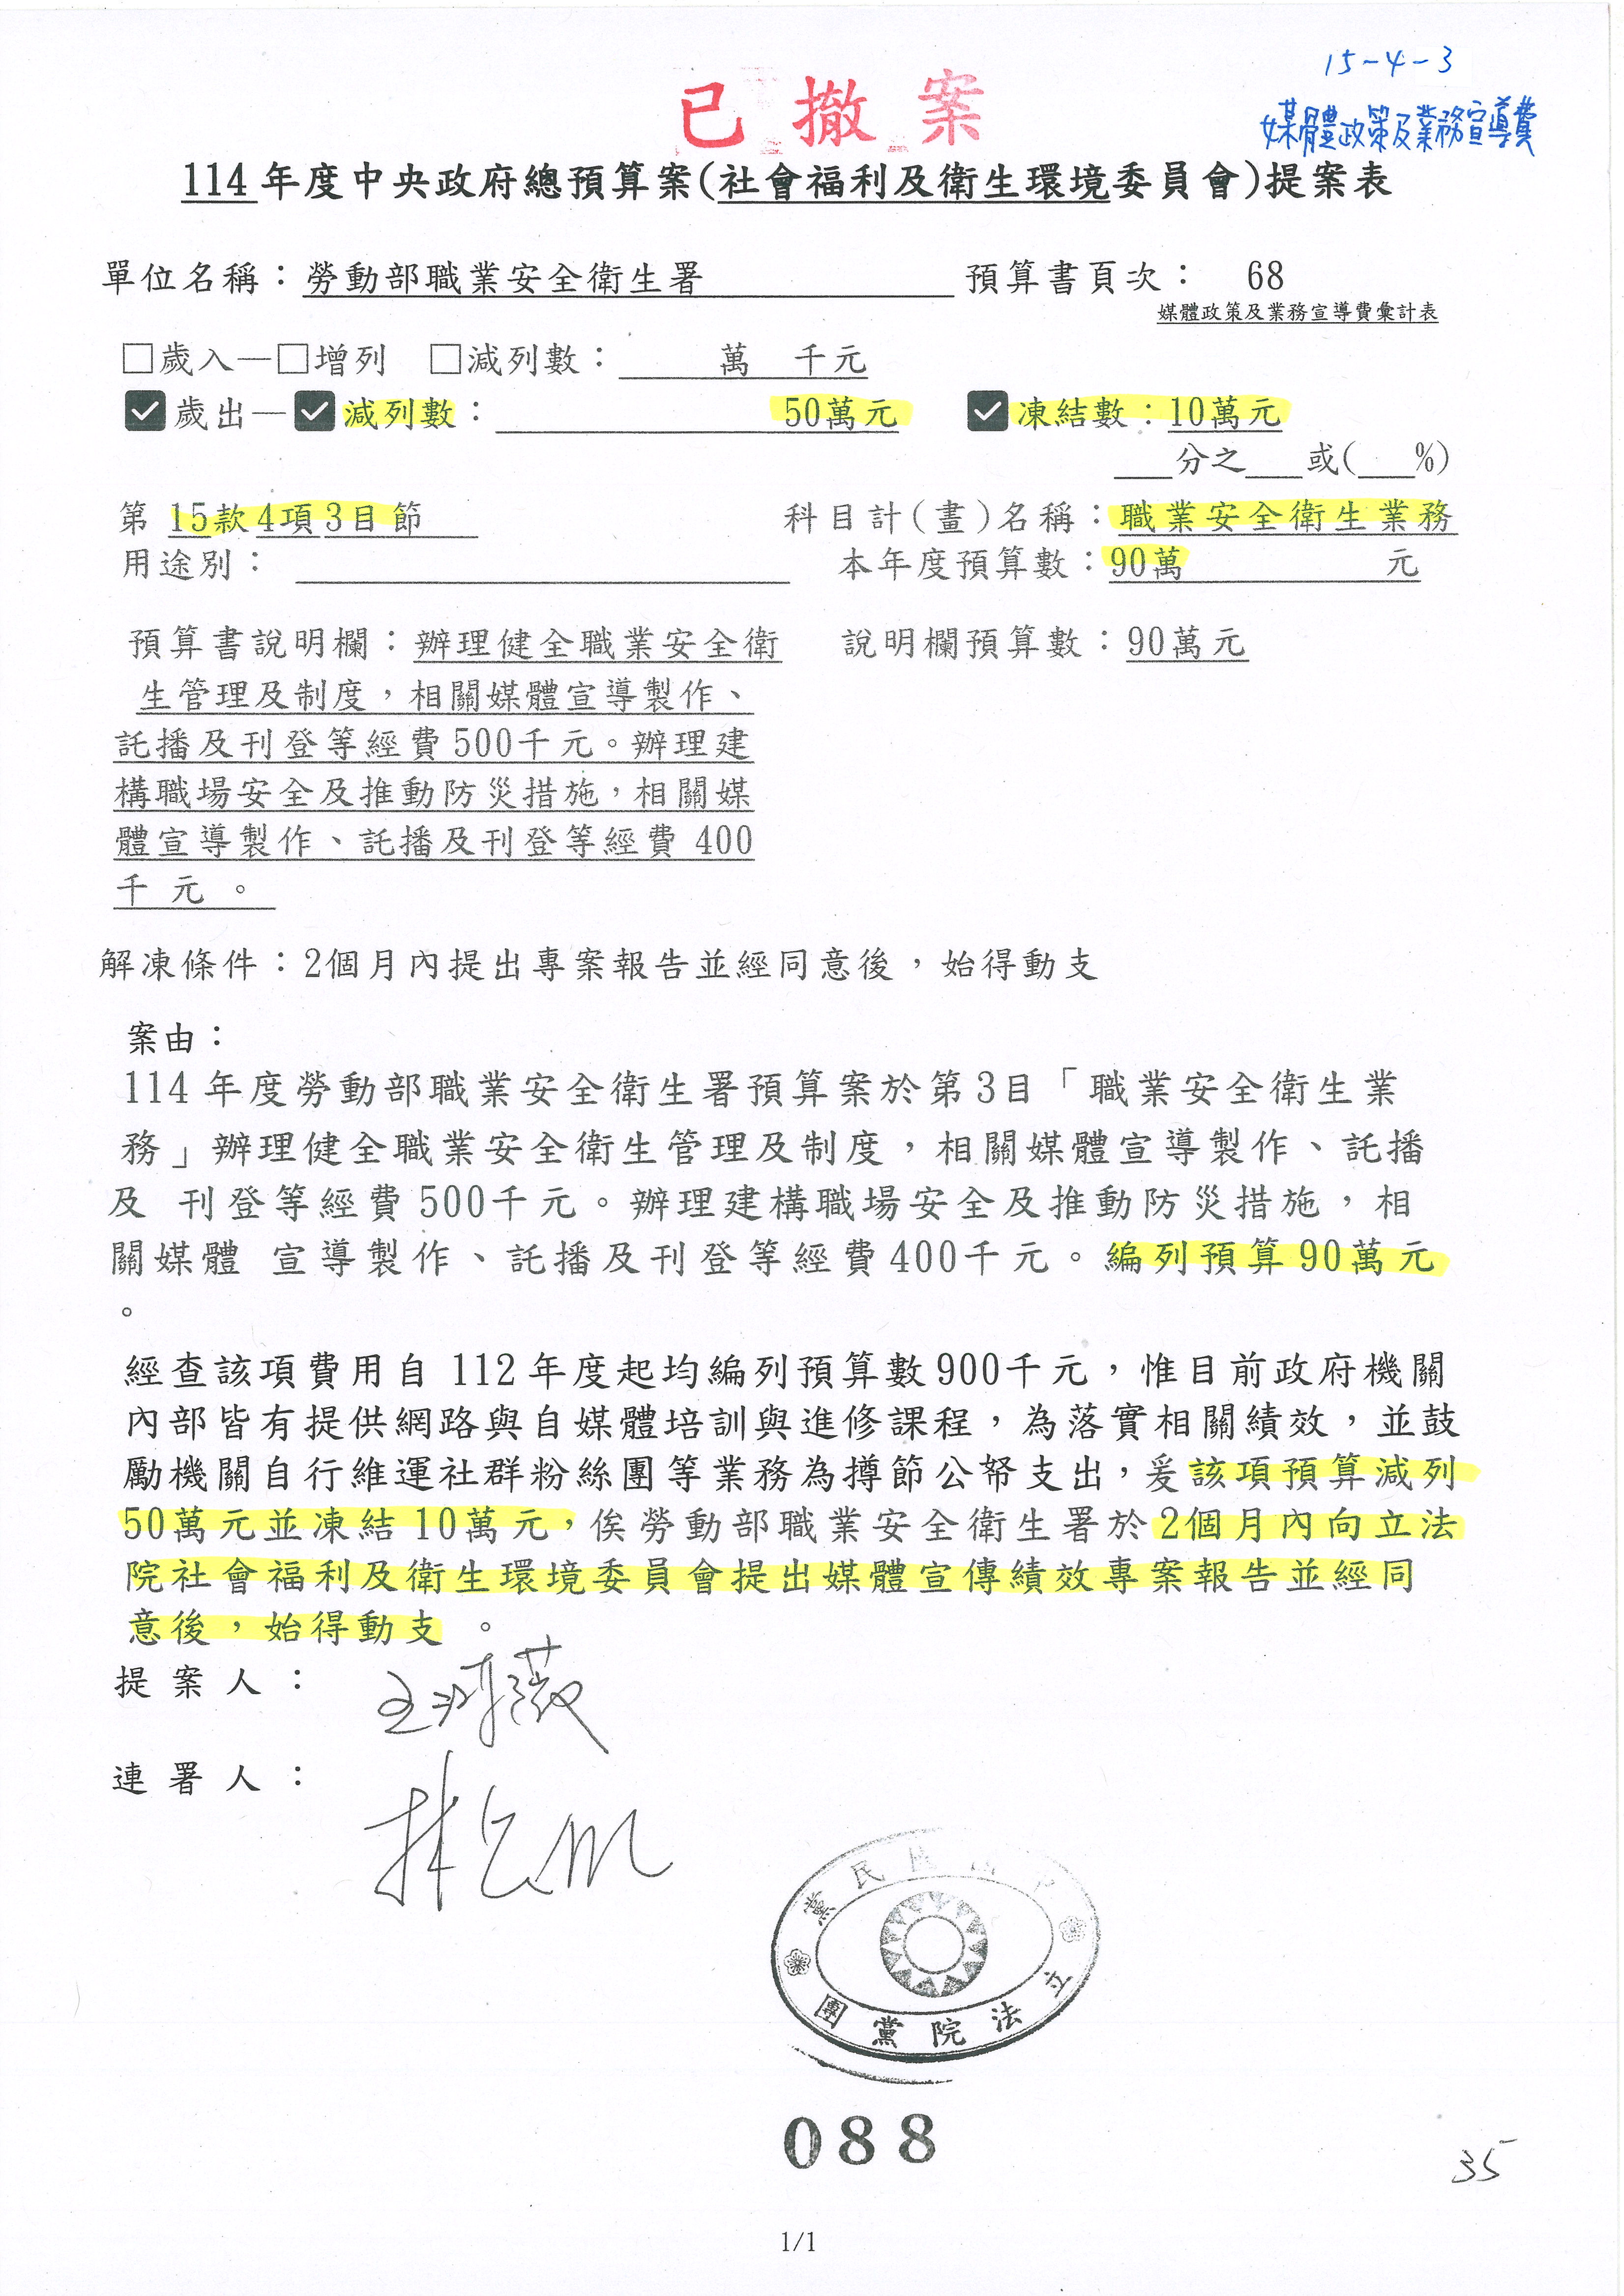 15-4-3
媒體政策及業務宣導費
已撤案
114年度中央政府總預算案(社會福利及衛生環境委員會)提案表
單位名稱：勞動部職業安全衛生署 預算書頁次： 68
媒體政策及業務宣導費彙計表
□歲入—□增列 □減列數： 萬 千元
☑歲出—☑減列數： 50萬元 ☑凍結數：10萬元
___分之___或(___%)
第 15款4項3目節 科目計(畫)名稱：職業安全衛生業務
用途別： 本年度預算數：90萬 元
預算書說明欄：辦理健全職業安全衛 說明欄預算數：90萬元
生管理及制度，相關媒體宣導製作、
託播及刊登等經費500千元。辦理建
構職場安全及推動防災措施，相關媒
體宣導製作、託播及刊登等經費 400
千元。
解凍條件：2個月內提出專案報告並經同意後，始得動支
案由：
114年度勞動部職業安全衛生署預算案於第3目「職業安全衛生業
務」辦理健全職業安全衛生管理及制度，相關媒體宣導製作、託播
及 刊登等經費500千元。辦理建構職場安全及推動防災措施，相
關媒體 宣導製作、託播及刊登等經費400千元。編列預算90萬元
。
經查該項費用自 112年度起均編列預算數900千元，惟目前政府機關
內部皆有提供網路與自媒體培訓與進修課程，為落實相關績效，並鼓
勵機關自行維運社群粉絲團等業務為撙節公帑支出，爰該項預算減列
50萬元並凍結10萬元，俟勞動部職業安全衛生署於2個月內向立法
院社會福利及衛生環境委員會提出媒體宣傳績效專案報告並經同
意後，始得動支 。
提案人：
連署人：
民黨
立法院黨團
088
35
1/1